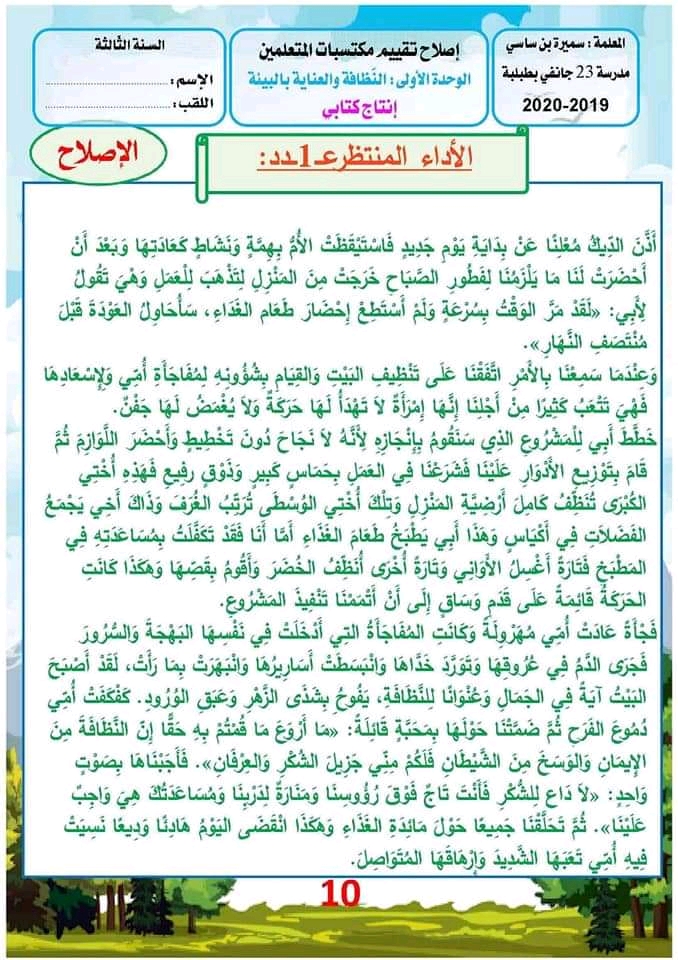 المعلمة : سميرة بن ساسي
مدرسة 23 جانفي بطبلبة
2020-2019
إصلاح تقييم مكتسبات المتعلمين
الوحدة الأولى: النّظافة والعناية بالبيئة
إنتاج كتابي
السنة الثالثة
الإسم: ........................
اللقب: ........................
الأداء المنتظر عـ1ـدد:
الإصلاح
أَذَّنَ الدِّيكُ مُعْلِنًا عَنْ بِدَايَةِ يَوْمٍ جَدِيدٍ فَاسْتَيْقَظَتْ الأُمُّ بِهِمَّةٍ وَنَشَاطٍ كَعَادَتِهَا وَبَعْدَ أَنْ
أَحْضَرَتْ لَنَا مَا يَلْزَمُنَا لِفَطُورِ الصَّبَاحِ خَرَجَتْ مِنَ المَنْزِلِ لِتَذْهَبَ لِلْعَمَلِ وَهِيَ تَقُولُ
لِأَبِي: «لَقَدْ مَرَّ الوَقْتُ بِسُرْعَةٍ وَلَمْ أَسْتَطِعْ إِحْضَارَ طَعَامِ الغَدَاءِ، سَأُحَاوِلُ العَوْدَةَ قَبْلَ
مُنْتَصَفِ النَّهَارِ».
وَعِنْدَمَا سَمِعْنَا بِالأَمْرِ اتَّفَقْنَا عَلَى تَنْظِيفِ البَيْتِ وَالقِيَامِ بِشُؤُونِهِ لِمُفَاجَأَةِ أُمِّي وَلِإِسْعَادِهَا
فَهِيَ تَتْعَبُ كَثِيرًا مِنْ أَجْلِنَا إِنَّهَا إِمْرَأَةٌ لاَ تَهْدَأُ لَهَا حَرَكَةٌ وَلاَ يُغْمَضُ لَهَا جَفْنٌ.
خَطَّطَ أَبِي لِلْمَشْرُوعِ الذِي سَنَقُومُ بِإِنْجَازِهِ لِأَنَّهُ لاَ نَجَاحَ دُونَ تَخْطِيطٍ وَأَحْضَرَ اللَّوَازِمَ ثُمَّ
قَامَ بِتَوْزِيعِ الأَدْوَارِ عَلَيْنَا فَشَرَعْنَا فِي العَمَلِ بِحَمَاسٍ كَبِيرٍ وَذَوْقٍ رَفِيعٍ فَهَذِهِ أُخْتِي
الكُبْرَى تُنَظِّفُ كَامِلَ أَرْضِيَّةِ المَنْزِلِ وَتِلْكَ أُخْتِي الوُسْطَى تُرَتِّبُ الغُرَفَ وَذَاكَ أَخِي يَجْمَعُ
الفَضَلاَتِ فِي أَكْيَاسٍ وَهَذَا أَبِي يَطْبَخُ طَعَامَ الغَدَاءِ أَمَّا أَنَا فَقَدْ تَكَفَّلَتُ بِمُسَاعَدَتِهِ فِي
المَطْبَخِ فَتَارَةً أَغْسِلُ الأَوَانِي وَتَارَةً أُخْرَى أُنَظِّفُ الخُضَرَ وَأَقُومُ بِقَصِّهَا وَهَكَذَا كَانَتِ
الحَرَكَةُ قَائِمَةً عَلَى قَدَمٍ وَسَاقٍ إِلَى أَنْ أَتْمَمْنَا تَنْفِيذَ المَشْرُوعِ.
فَجْأَةً عَادَتْ أُمِّي مُهَرْوِلَةً وَكَانَتِ المُفَاجَأَةُ التِي أَدْخَلَتْ فِي نَفْسِهَا البَهْجَةَ وَالسُّرُورَ
فَجَرَى الدَّمُ فِي عُرُوقِهَا وَتَوَرَّدَ خَدَّاهَا وَانْبَسَطَتْ أَسَارِيرُهَا وَانْبَهَرَتْ بِمَا رَأَتْ، لَقَدْ أَصْبَحَ
البَيْتُ آيَةً فِي الجَمَالِ وَعُنْوَانًا لِلنَّظَافَةِ، يَفُوحُ بِشَذَى الزَّهْرِ وَعَبَقِ الوُرُودِ. كَفْكَفَتْ أُمِّي
دُمُوعَ الفَرَحِ ثُمَّ ضَمَّتْنَا حَوْلَهَا بِمَحَبَّةٍ قَائِلَةً: «مَا أَرْوَعَ مَا قُمْتُمْ بِهِ حَقًّا إِنَّ النَّظَافَةَ مِنَ
الإِيمَانِ وَالوَسَخَ مِنَ الشَّيْطَانِ فَلَكُمْ مِنِّي جَزِيلَ الشُّكْرِ وَالعِرْفَانِ». فَأَجَبْنَاهَا بِصَوْتٍ
وَاحِدٍ: «لاَ دَاعٍ لِلشُّكْرِ فَأَنْتَ تَاجٌ فَوْقَ رُؤُوسِنَا وَمَنَارَةٌ لِدَرْبِنَا وَمُسَاعَدَتُكَ هِيَ وَاجِبٌ
عَلَيْنَا». ثُمَّ تَحَلَّقْنَا جَمِيعًا حَوْلَ مَائِدَةِ الغَدَاءِ وَهَكَذَا انْقَضَى اليَوْمُ هَادِئًا وَدِيعًا نَسِيَتْ
فِيهِ أُمِّي تَعَبَهَا الشَّدِيدَ وَإِرْهَاقَهَا المُتَوَاصِلَ.
10